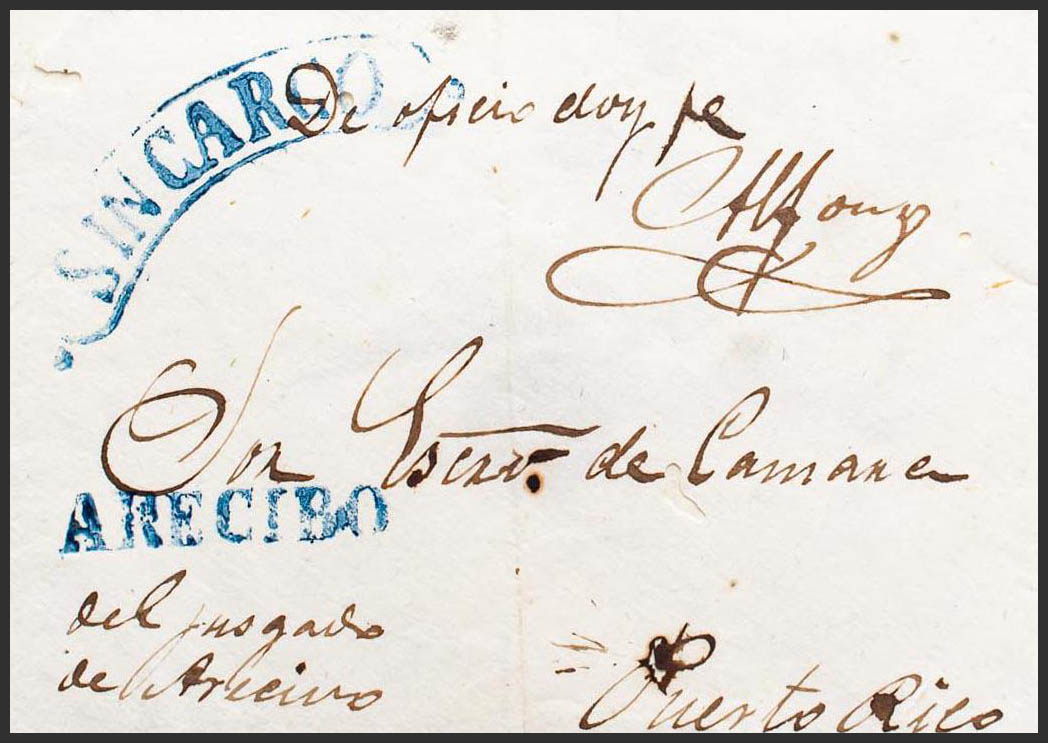 SIN CARGO
De oficio doy fe
Alfonzo
Son Escrv. de Camara
ARECIBO
del jusgado
de Arecivo
Puerto Rico